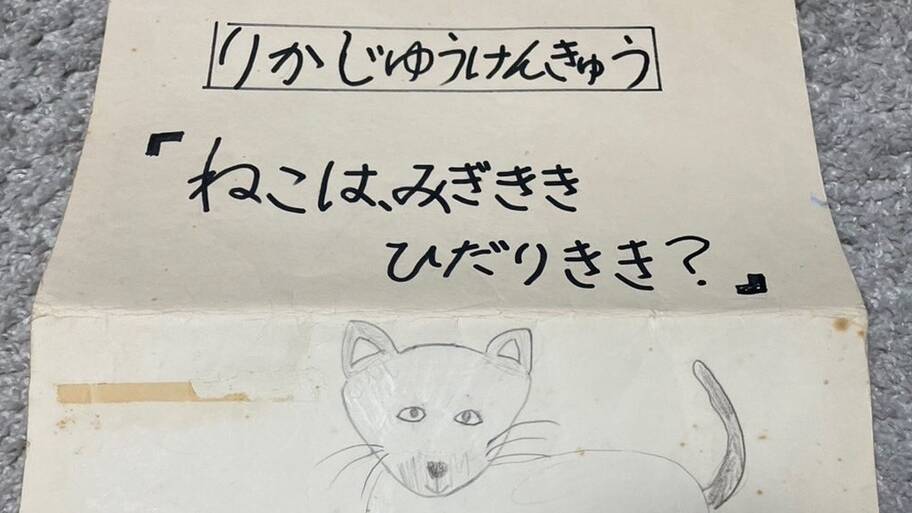 りかじゆうけんきゅう
『ねこは、みぎきき
ひだりきき?』